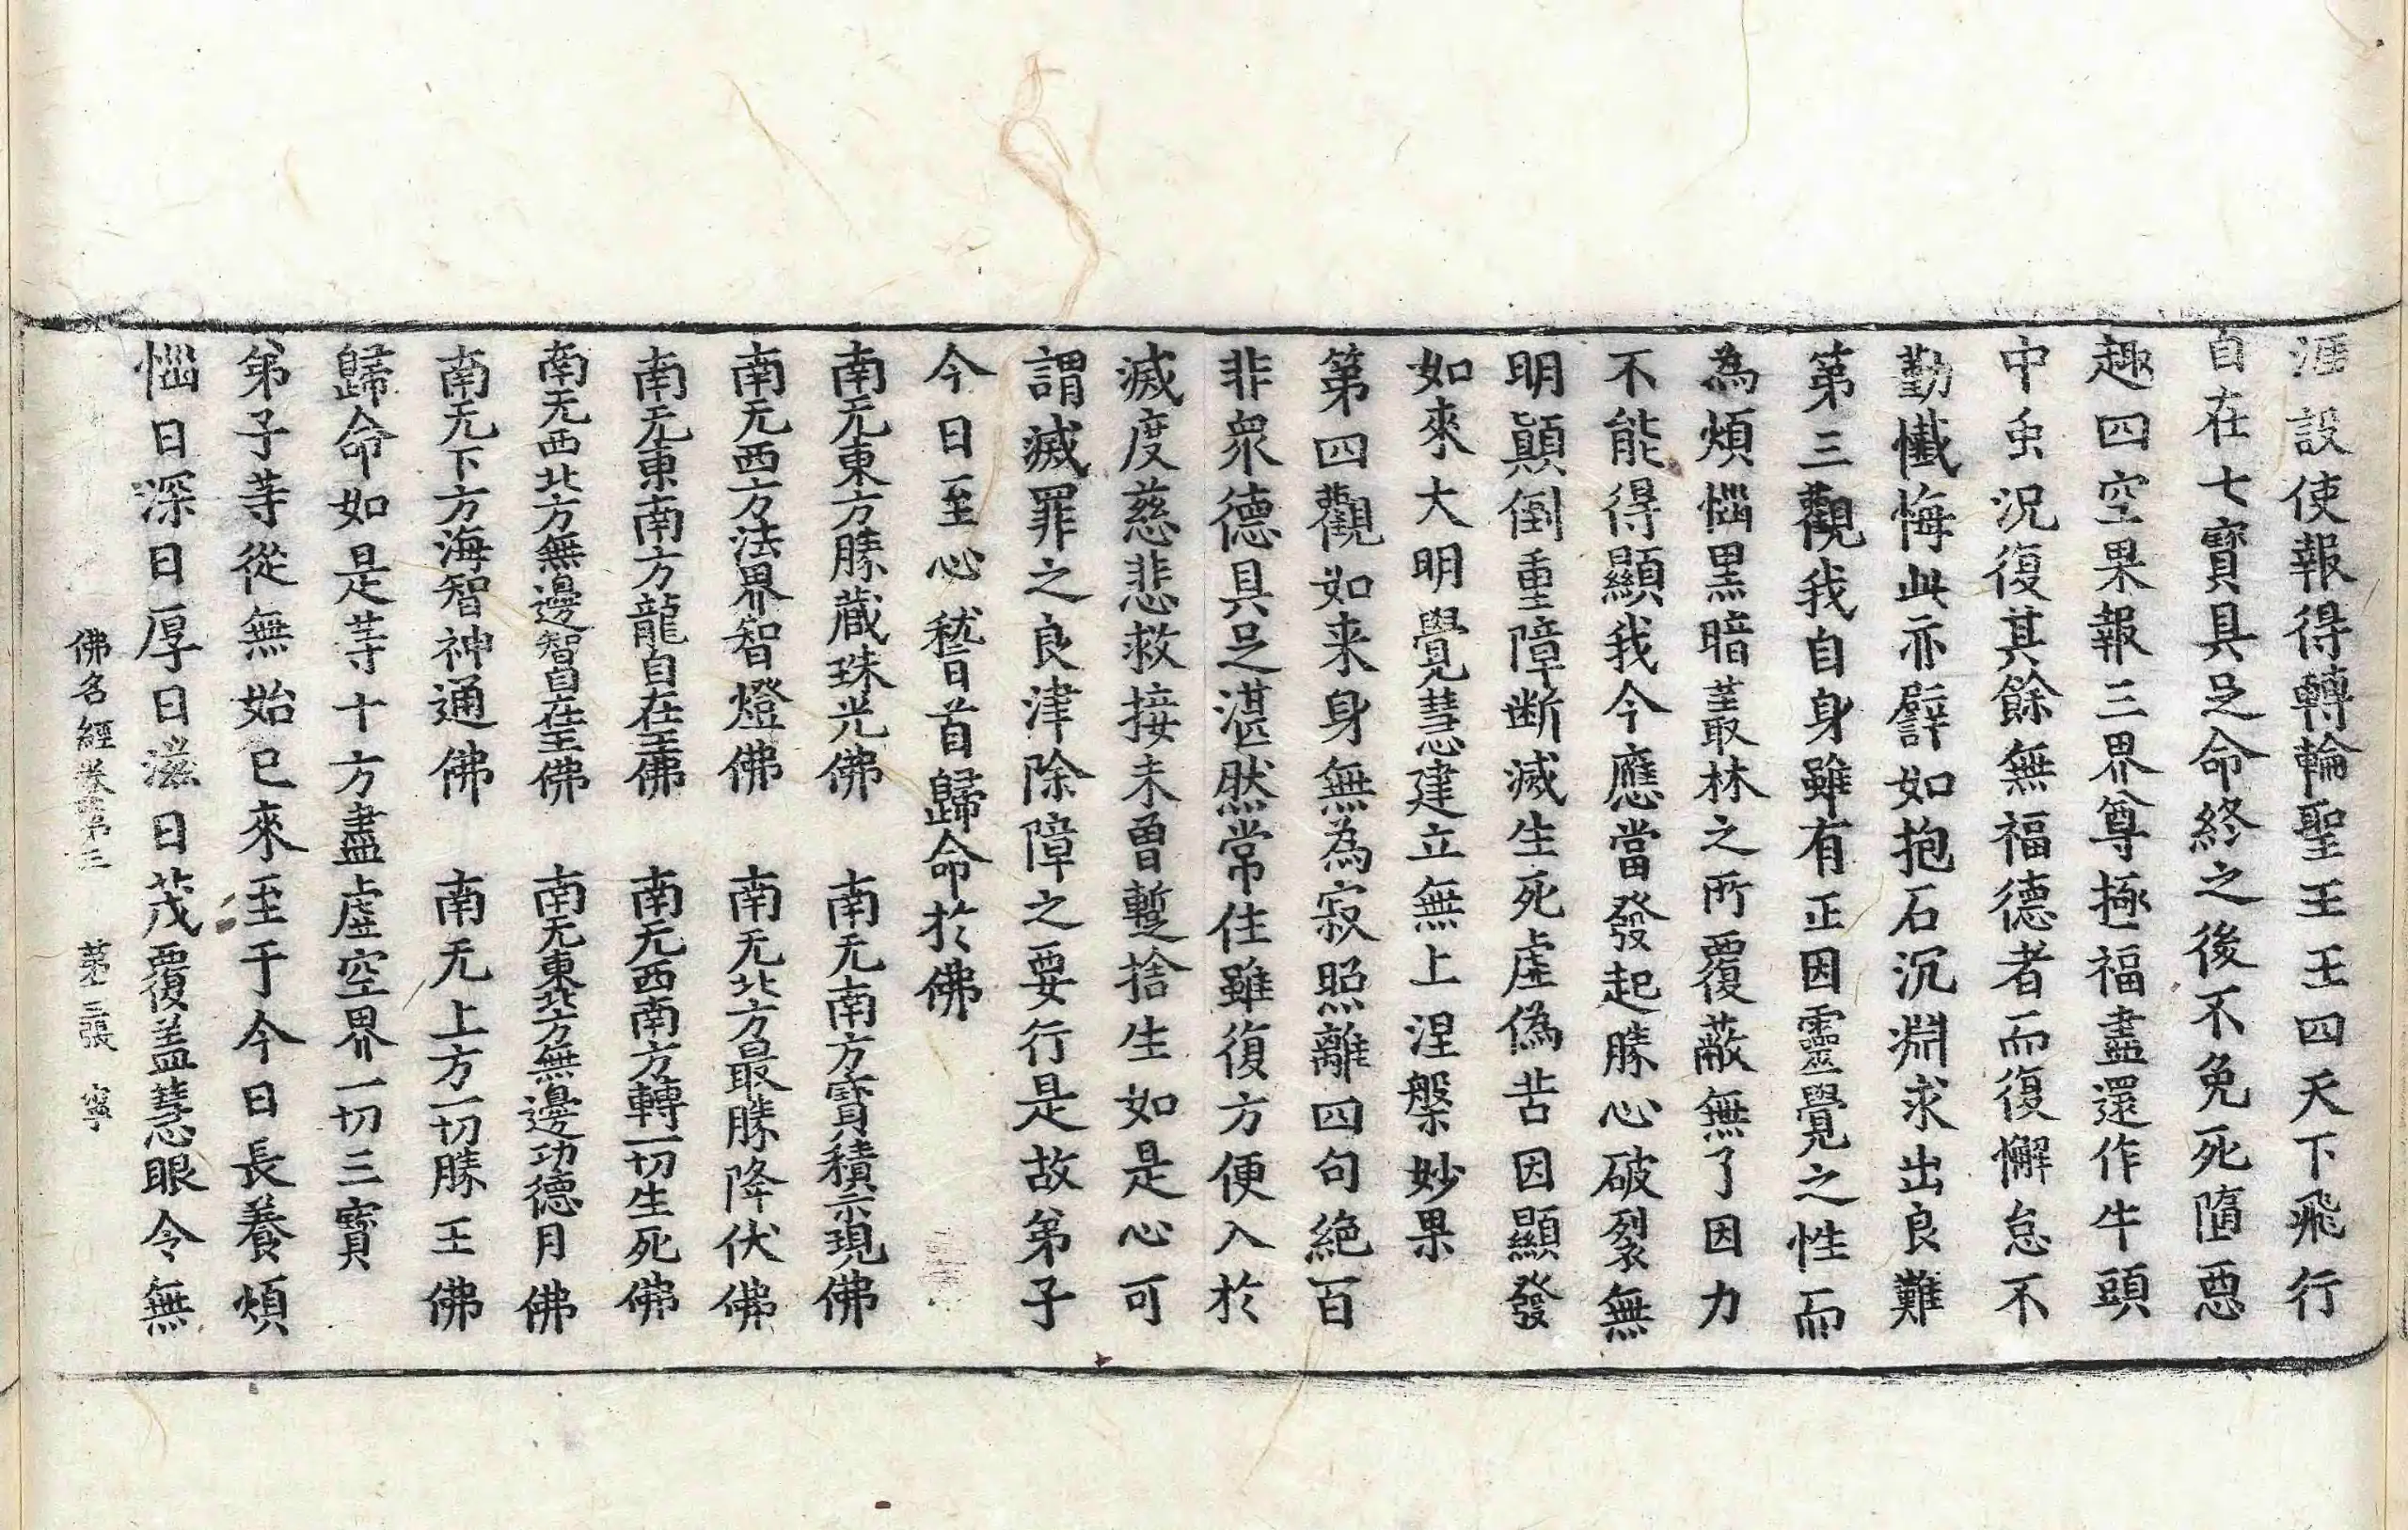 涯設使報得轉輪聖王王四天下飛行
自在七寶具足命終之後不免死隨惡
趣四空果報三界尊極福盡還作牛頭
中虫況復其餘無福德者而復懈怠不
勤懴悔此亦譬如抱石沉淵求出良難
第三觀我自身雖有正因靈覺之性而
為煩惱黑暗䕺林之所覆蔽無了因力
不能得顯我今應當發起勝心破裂無
明顛倒重障断滅生死虛偽苦因顯發
如來大明覺慧建立無上涅槃妙果
第四觀如来身無為寂照離四句絶百
非衆德具足湛然常住雖復方便入於
滅度慈悲救接未曽蹔捨生如是心可
謂滅罪之良津除障之要行是故弟子
今日至心𥡴首歸命於佛
南无東方勝藏珠光佛　南无南方寶積示現佛
南无西方法界智燈佛　南无北方最勝降伏佛
南无東南方龍自在王佛　南无西南方轉一切生死佛
南无西北方無邊智自在王佛　南无東北方無邊功德月佛
南无下方海智神通佛　南无上方一切勝王佛
歸命如是䓁十方盡虛空界一切三寶
弟子䓁從無始已來至于今日長養煩
惱日深日厚日滋日茂覆盖慧眼令無
佛名經卷第三　第三張　寧